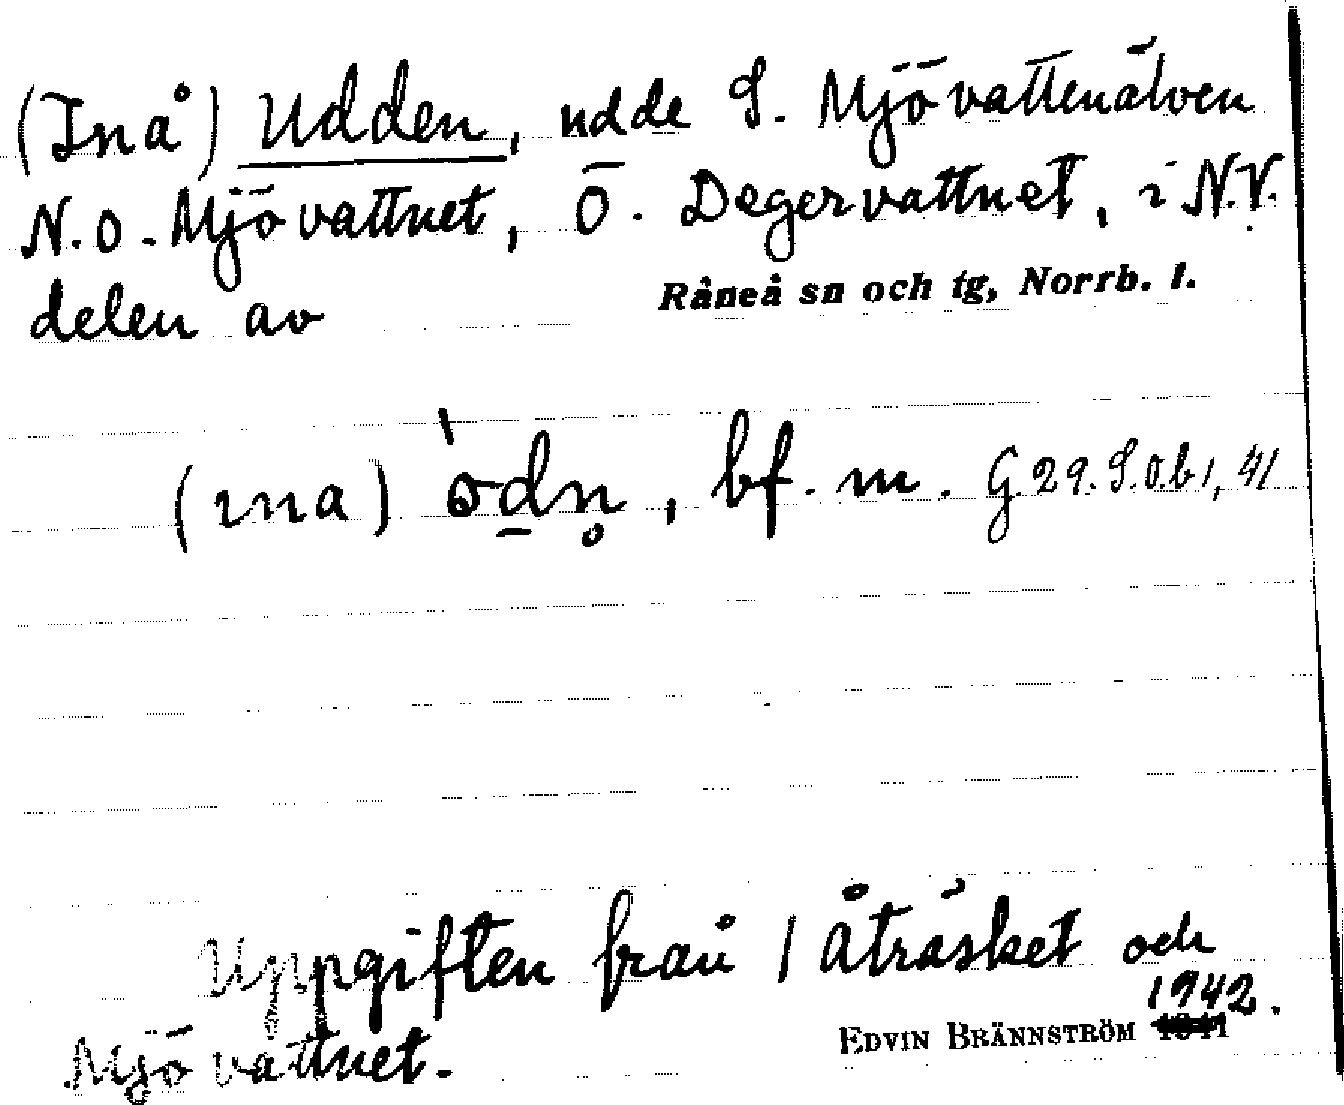 (Inå) Udden, udde S. Mjövattenälven
N.O. Mjövattnet, Ö. Degervattnet, i N.V.
delen av Råneå sn och tg, Norrb. l.
(ına) ˋödn̥, bf. m. G. 29. S.O.b1, 41
Uppgiften från 1 Åträsket och
Mjövattnet. EDVIN BRÄNNSTRÖM 1942.